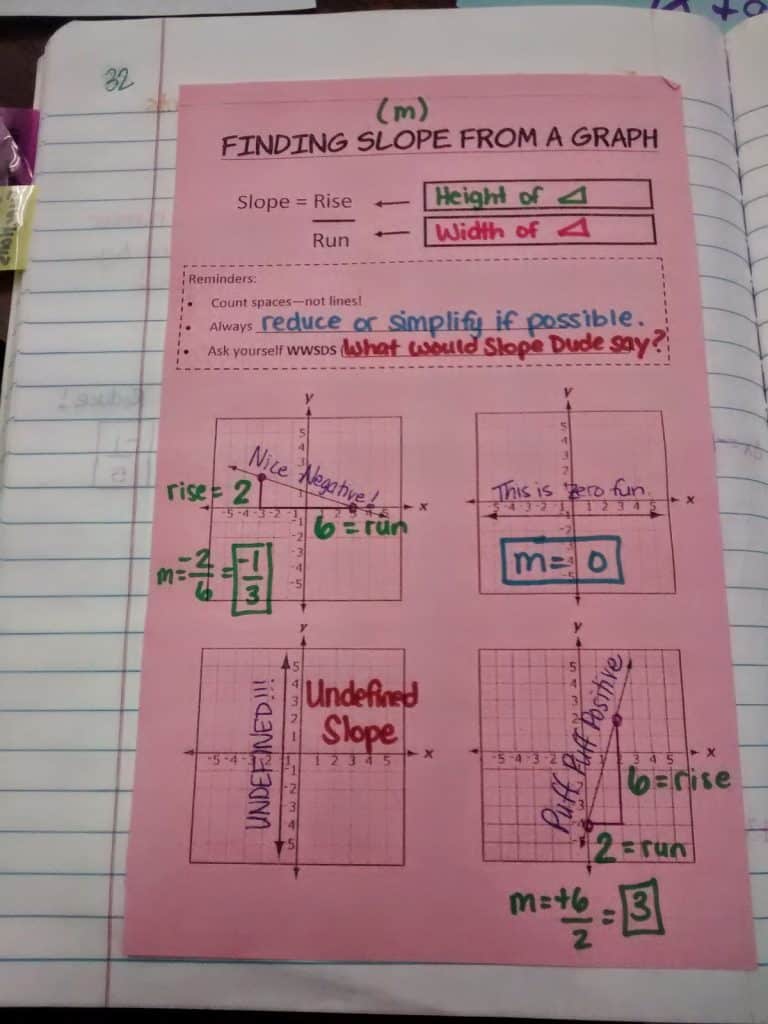 32
(m)
FINDING SLOPE FROM A GRAPH
Slope = Rise ← Height of ⊿
Run ← Width of ⊿
Reminders:
• Count spaces—not lines!
• Always reduce or simplify if possible.
• Ask yourself WWSDS (What would Slope Dude say?
y
5
4
3
1
Nice Negative!
rise = 2
x
-5 -4 -3 -2 2 3 4 5
-1
-2
-3
-4
-5
6 = run
m = -2/6 = -1/3
y
5
4
3
2
This is Zero fun.
x
-5 -4 -3 -2 -1 1 2 3 4 5
-2
m = 0
y
5
4
3
2
1
UNDEFINED!!!
Undefined
Slope
x
-5 -4 -3 -2 -1 1 2 3 4 5
-1
-2
-3
-4
-5
y
5
4
3
2
Puff Puff Positive
x
-5 -4 -3 -2 2 3 4 5
6 = rise
2 = run
m = +6/2 = 3